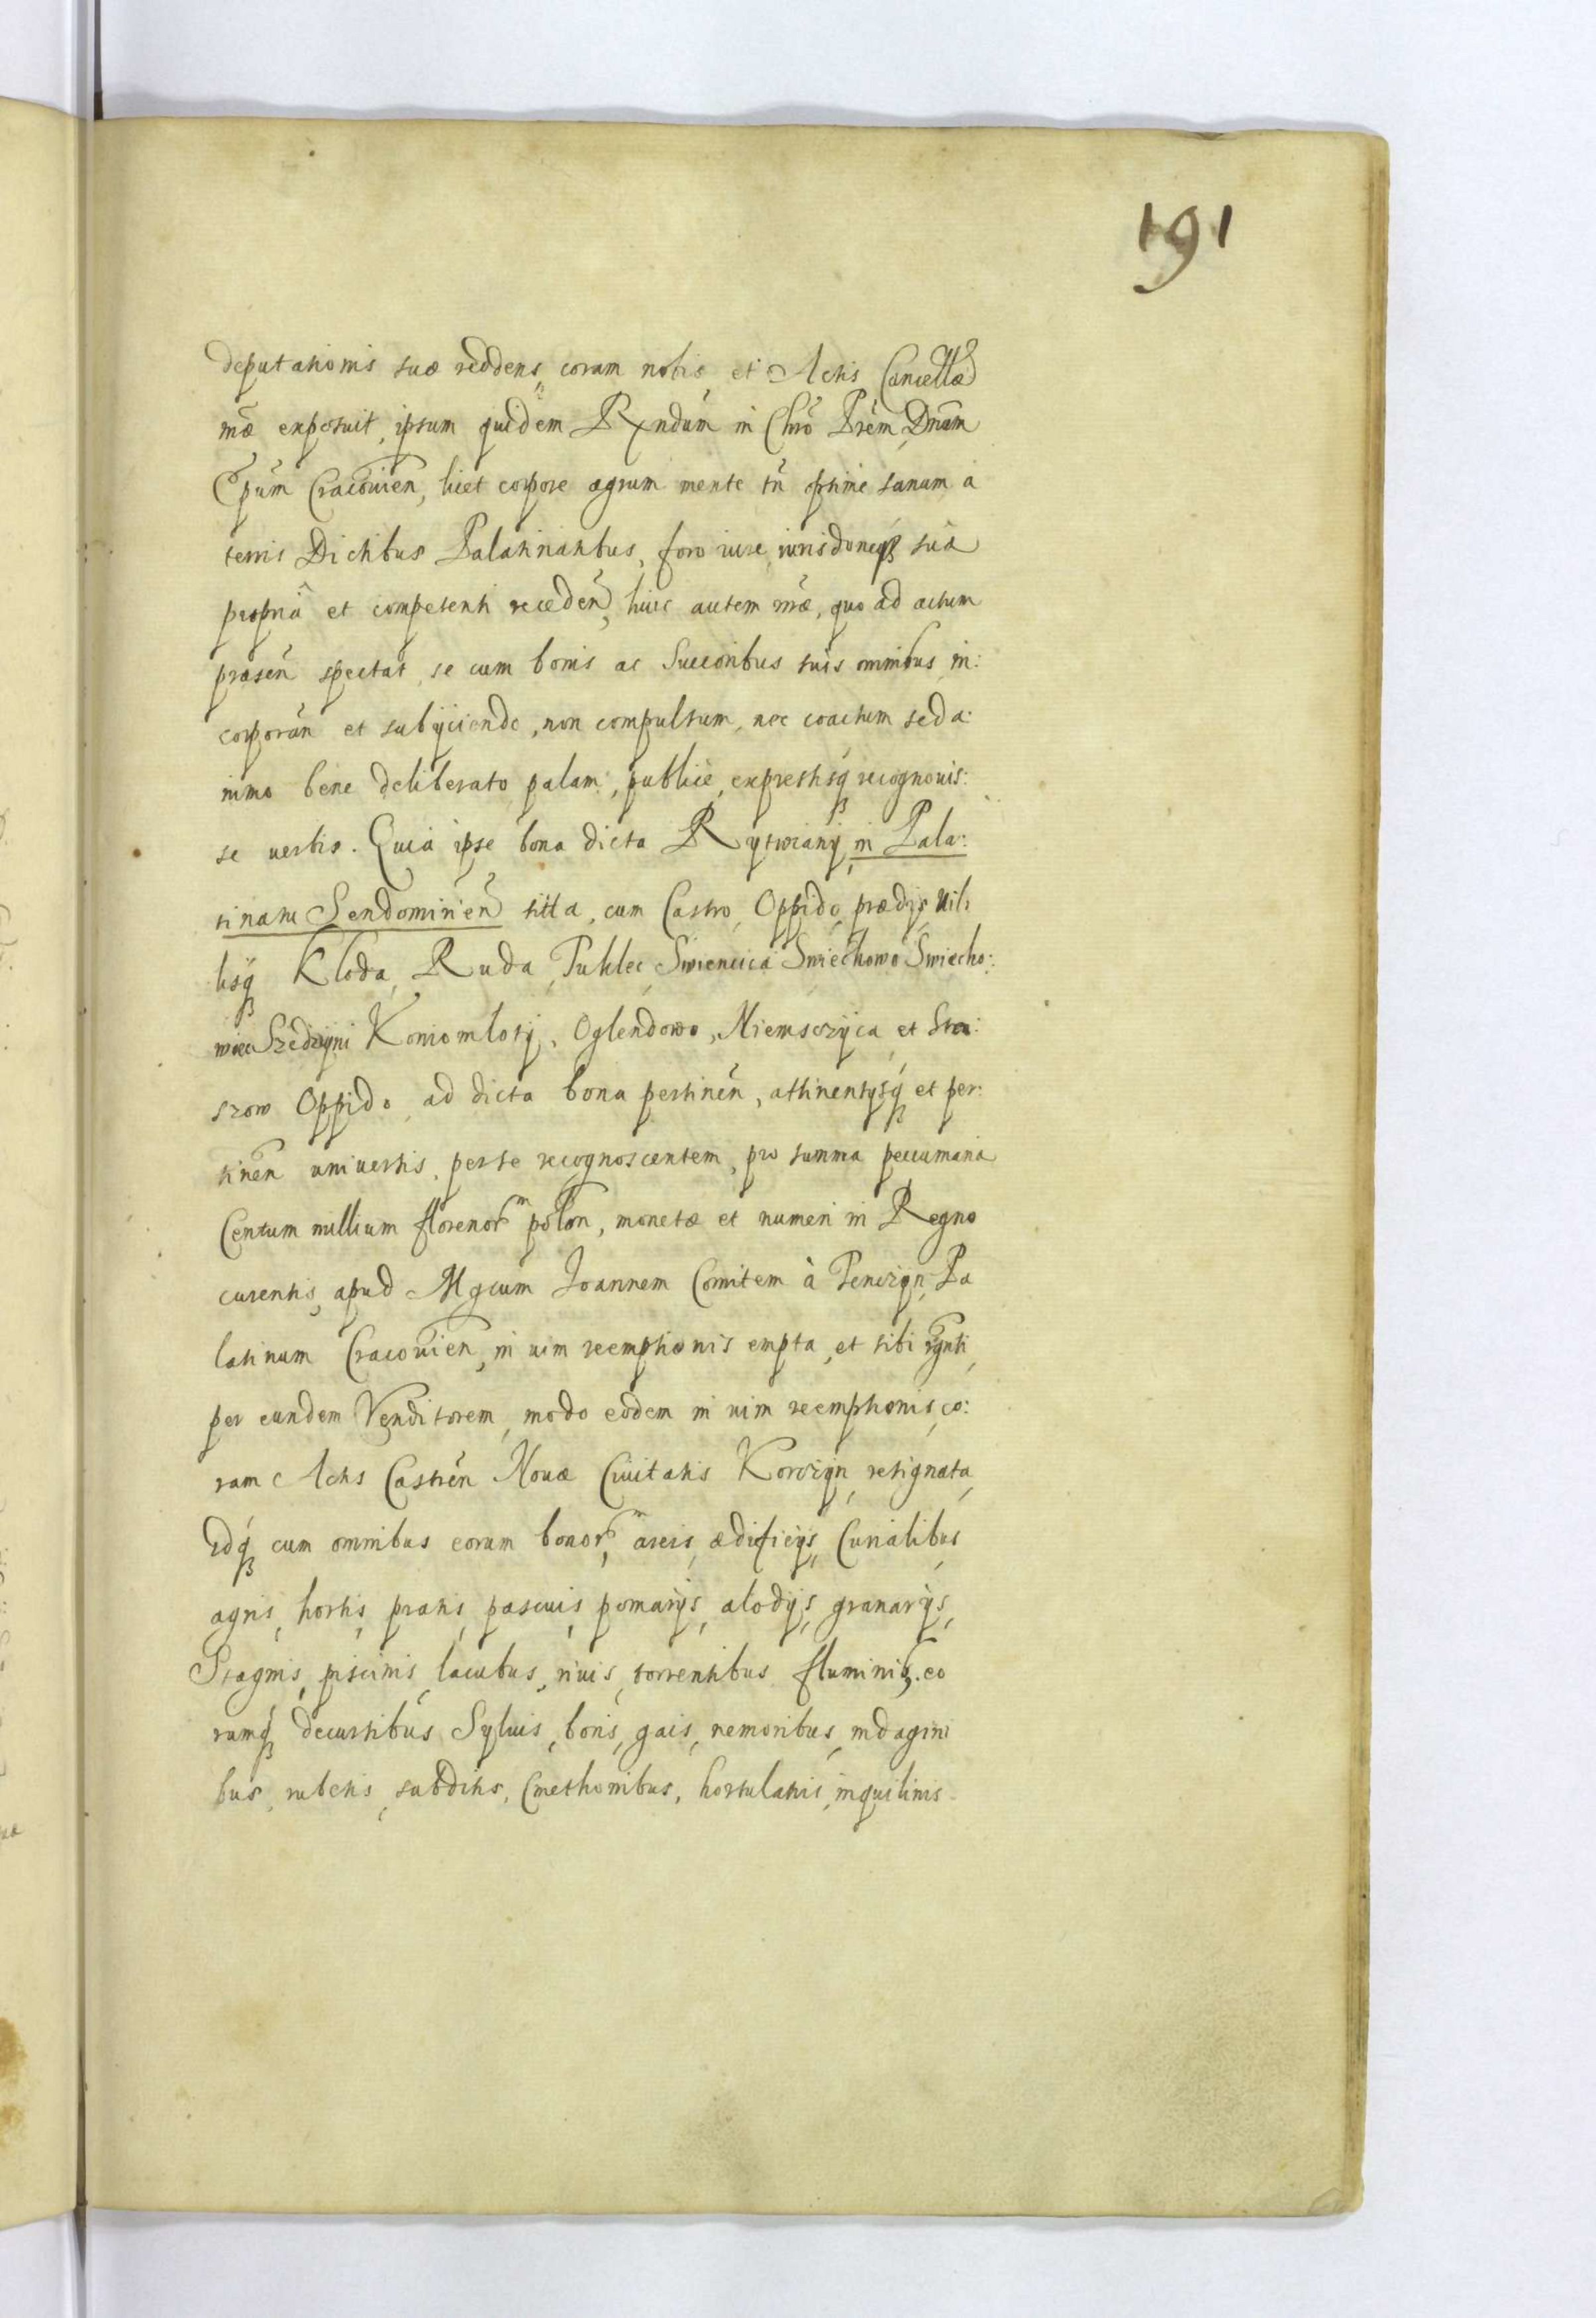 191
deputationis suæ reddens, coram nobis et Actis Cancellæ
nræ exposuit, ipsum quidem Rxndum in Chro Prem Dnum
Epum Cracouien, licet corpore ægrum mente tn optime sanum, a
terris Dictibus Palatinatibus, foro iure, iurisdoneq sua
propria et competenti receden, huic autem nræ, quo ad actum
præsen spectat, se cum bonis ac Succoribus suis omnibus, in:
corporan et subijciende, non compulsum, nec coactum sed a:
nimo bene deliberato palam, publice, expressisq recognouis:
se uerbis. Quia ipse bona dicta Rytwiany, in Pala:
tinatu Sendominien sitta, cum Castro, Oppido, prædijs, Uil:
lisq Kloda, Ruda, Tuklec, Swiencica Swiechowo Swiecho:
Szedzijni Koniomloty, Oglendowo, Niemsczyca, et Sta:
szow Oppido, ad dicta bona pertinen, attinentijsq et per:
tinen uniuersis, per se recognoscentem, pro summa pecuniaria
Centum millium florenor polon, monetæ et numeri in Regno
curentis, apud Mgcum Joannem Comitem à Tenczyn, Pa
latinum Cracouien, in uim reemptionis empta, et sibi rgnti,
per eundem Venditorem, modo eodem in uim reemptionis, co:
ram Actis Castren Nouæ Ciuitatis Korczyn, resignata,
Idq cum omnibus eorum bonor, areis, ædificijs, Curialibus,
agris, hortis, pratis, pascuis, pomarijs, alodijs, granarijs,
Stagnis, piscinis, lacubus, riuis, torrentibus, fluminib. eo
rumq decursibus Syluis, boris, gais, nemoribus, indagini
bus, rubetis, subditis, Cmethonibus, hortulanis, inquilinis